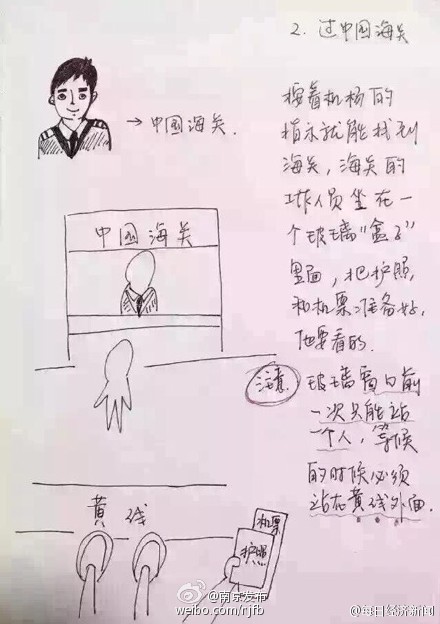 2. 过中国海关
→中国海关.
按着机场的
指示就能找到
海关，海关的
工作人员坐在一
个玻璃“盒子”
里面，把护照，
和机票准备好，
他要看的.
中国海关
注意
玻璃窗口前
一次只能站
一个人，等候
的时候必须
站在黄线外面.
黄线
机票
护照
@南京发布
weibo.com/njfb
@每日经济新闻